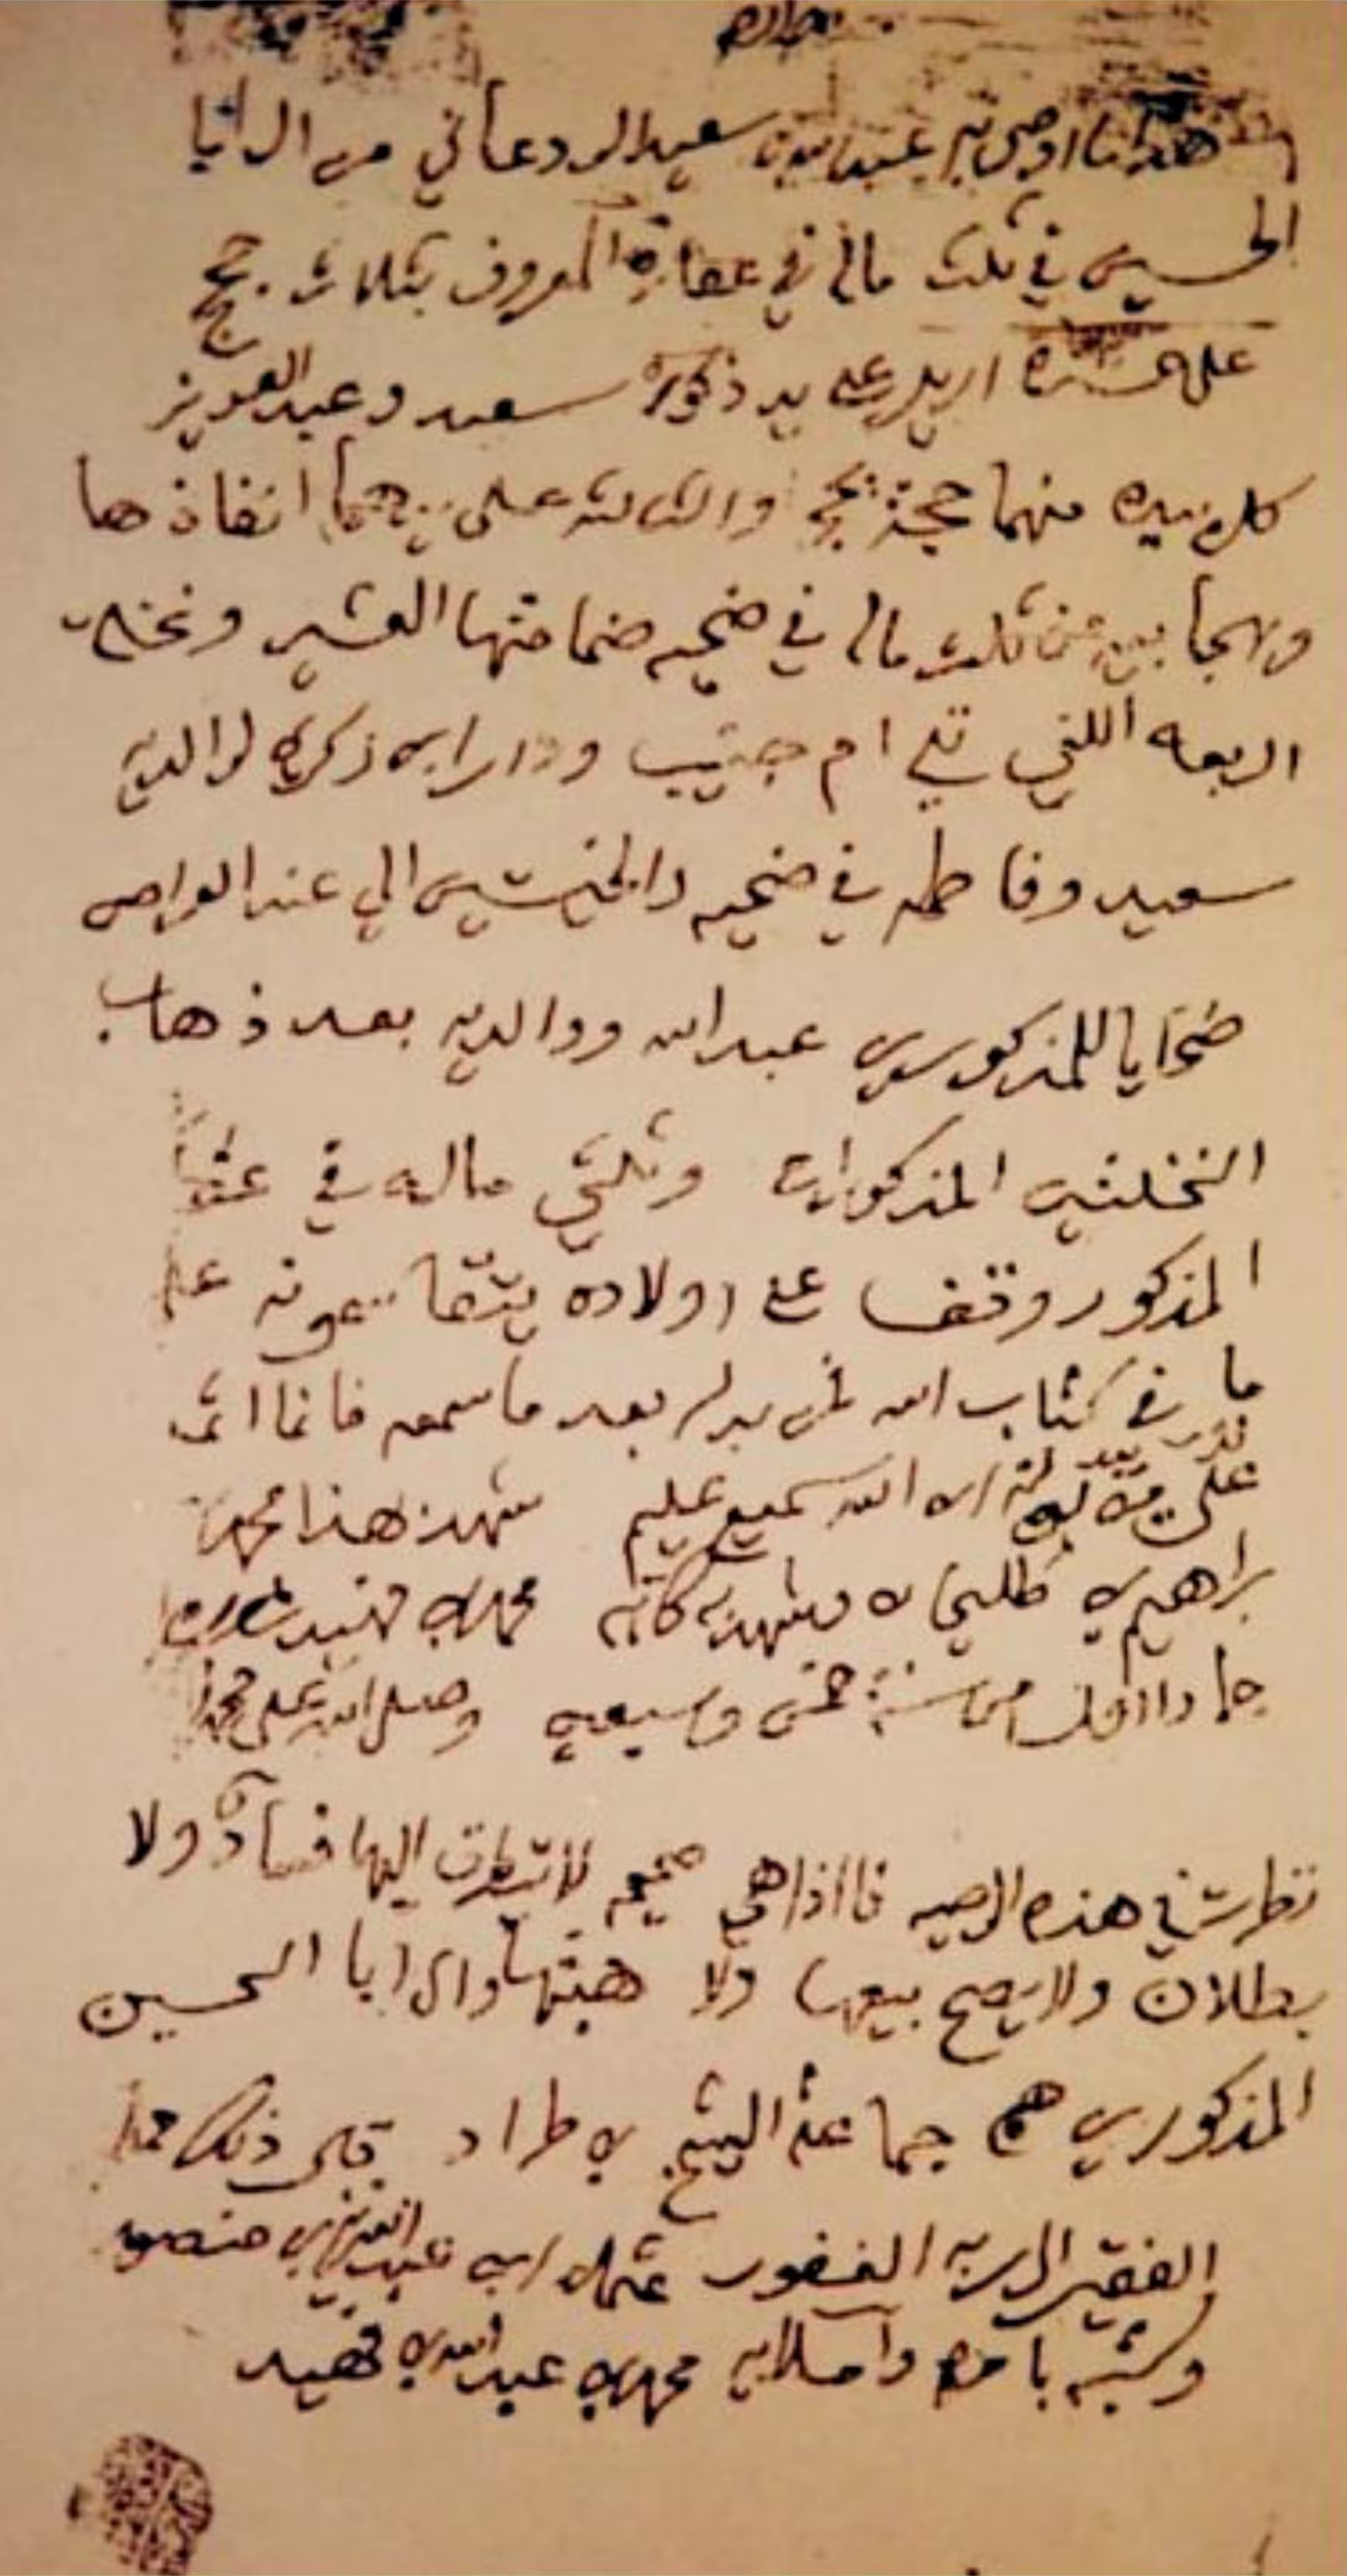 هذا ما اوصى به عبدالله بن سعيد الودعاني من ال ابا
الحسين في ثلث ماله في عقاره المعروف بثلاث حجج
على عشرة اريل على يد ذكوره سعد وعبدالعزيز
كلن بيده منهما حجة يحج والثالثه على انفاذها
من ثلث ماله في ضحيه ضمانتها العشر ونخله
الربعه اللتي تلي ام جنيب ودار ابن زكري لوالديه
سعيد وفاطمه في ضحيه الي عند
ضحايا للمذكورين عبدالله ووالديه بعد ذهاب
النخلتين المذكورات وثلثي ماله في
المذكور وقف على اولاده يتقاسمونه على
ما قدر في كتاب الله فمن بدله بعد ما سمعه فانما اثمه
على من يبدلونه ان الله سميع عليم شهد هذا محمد بن
براهيم بن وشهد به كاتبه محمد بن فهيد
جماد الاول من سنة خمس وسبعين وصلى الله على محمد
نظرت في هذه الوصيه فااذا هي صحيحه لا يتطرق اليها فساد ولا
بطلان ولا يصح بيعها ولا هبتها وال ابا الحسين
المذكورين هم جماعة الشيخ بن طراد قاله
الفقير الى ربه الغفور عثمان ابن عبدالعزيز بن منصور
وكتبه بامره واملائه محمد بن عبدالله بن فهيد